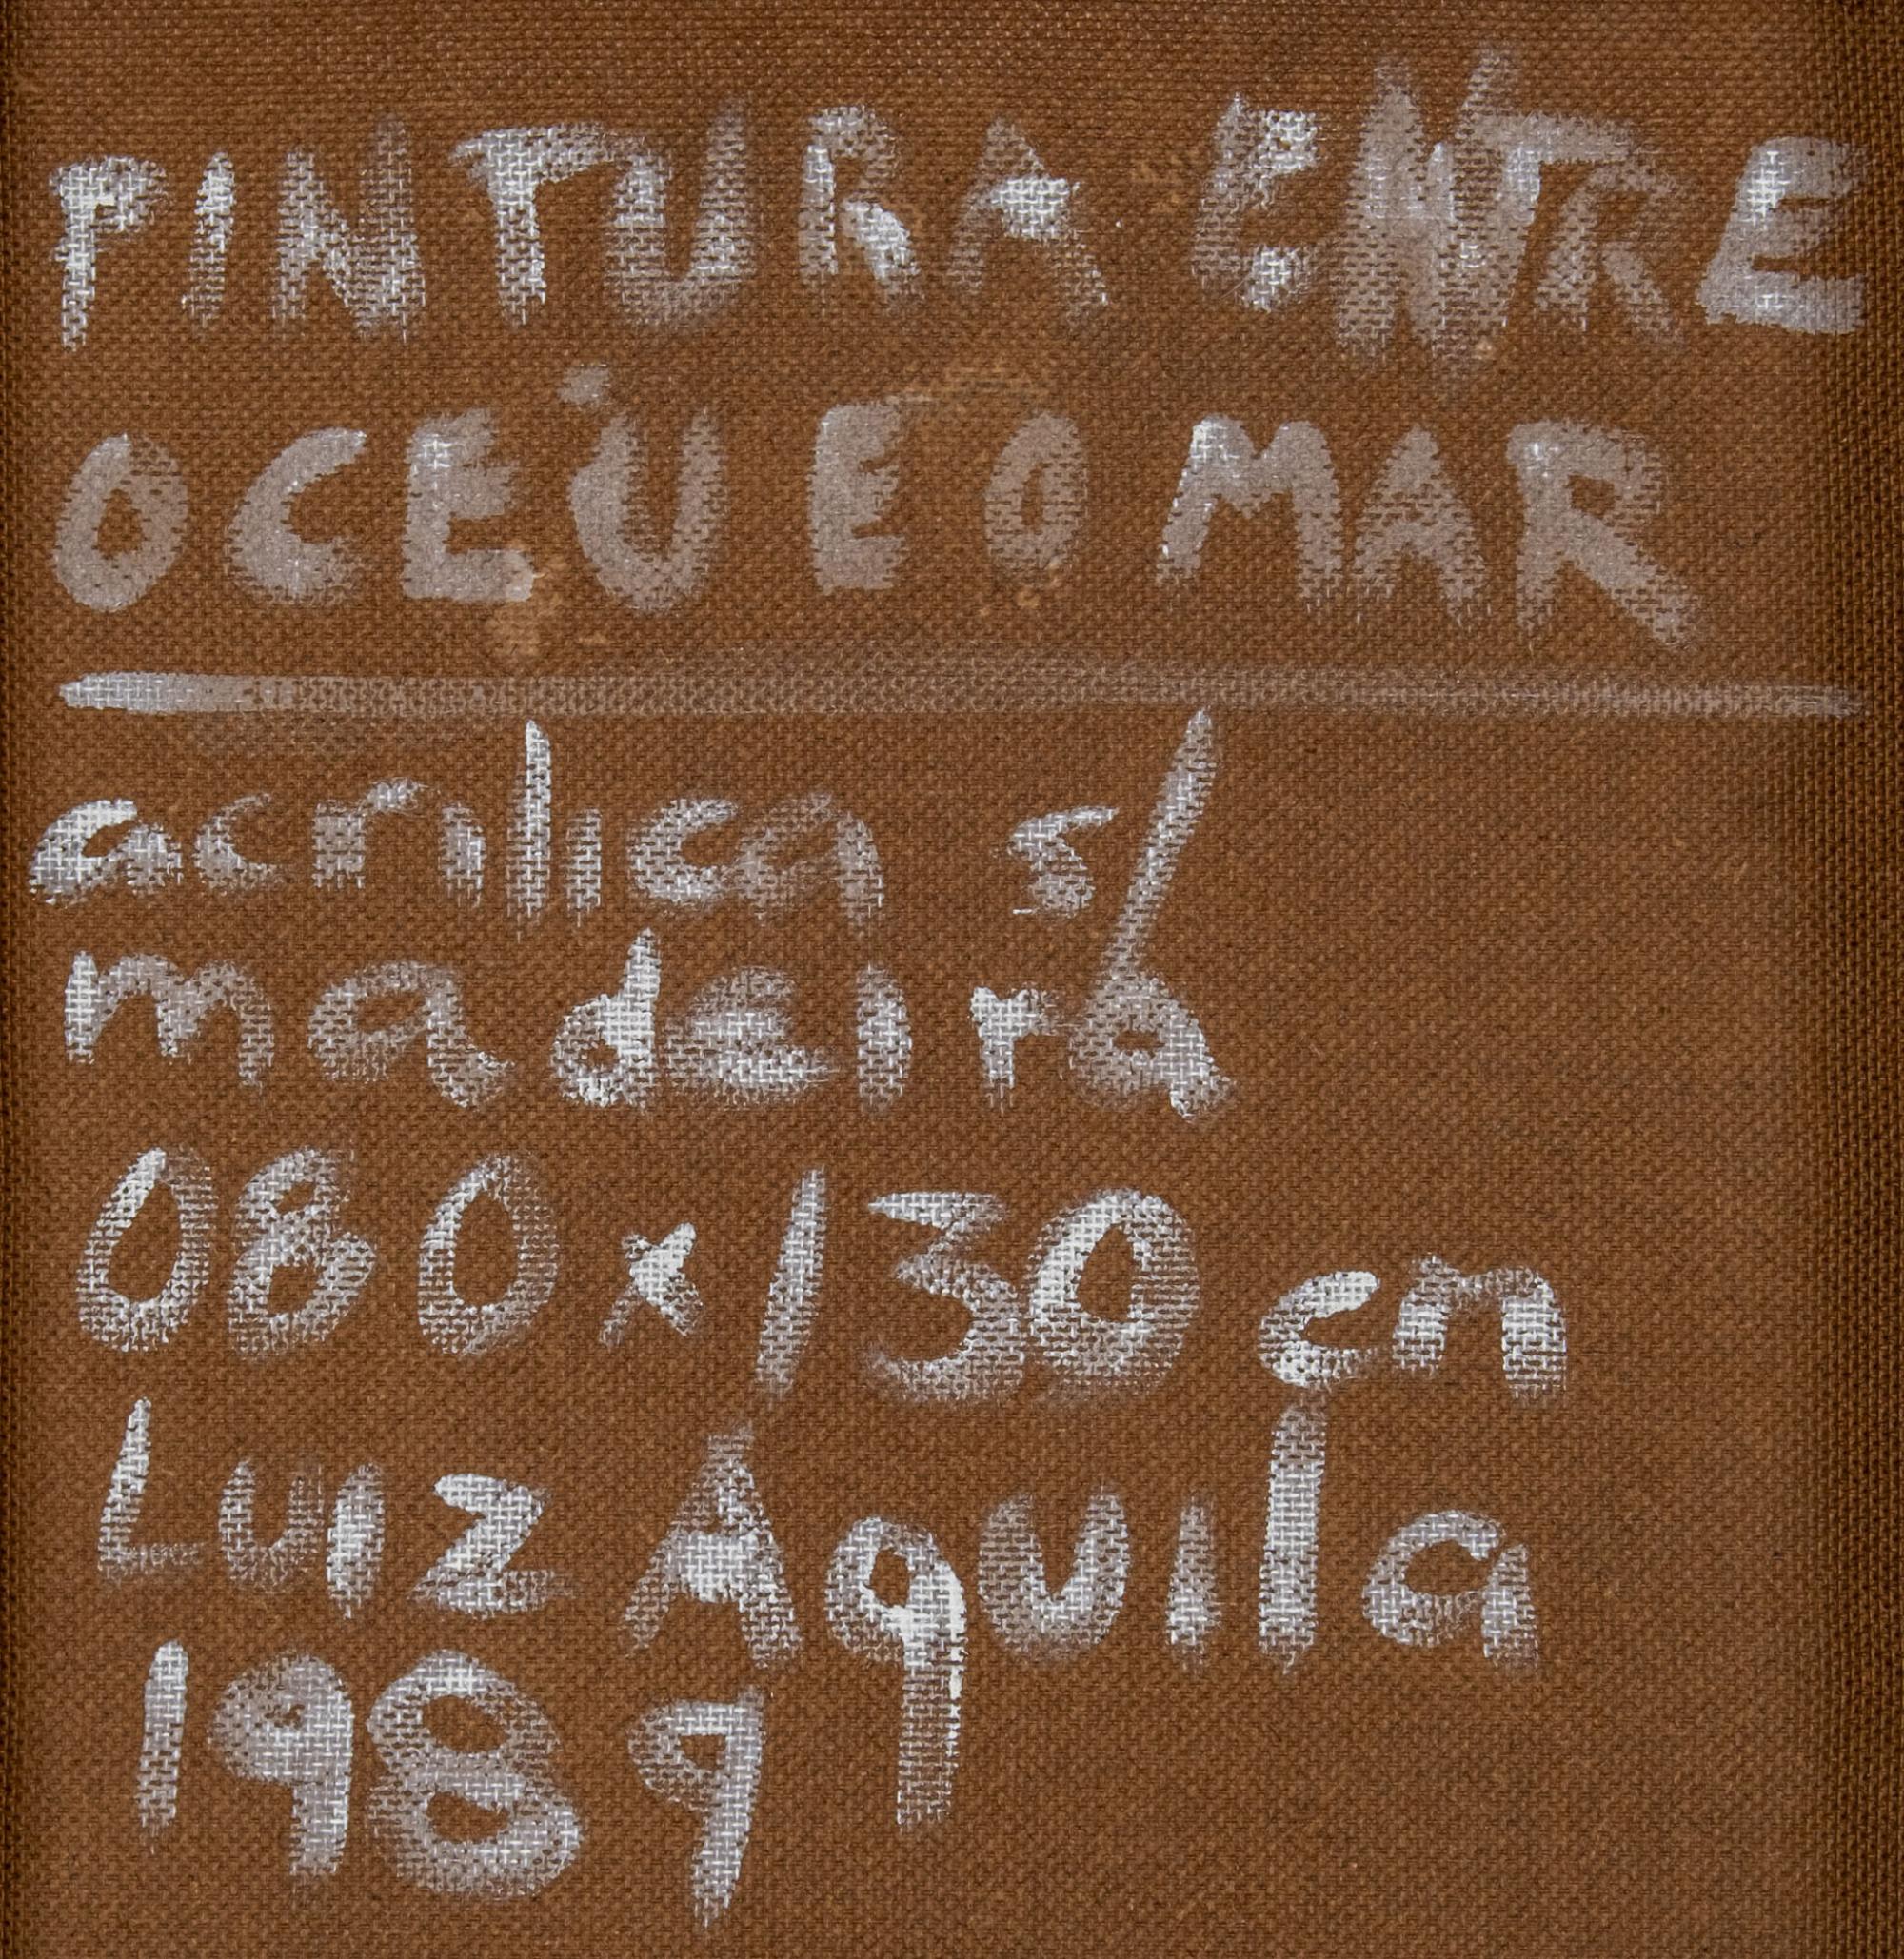 PINTURA ENTRE
O CÉU E O MAR
acrilica s/
madeira
080 x 130 cm
Luiz Aquila
1989